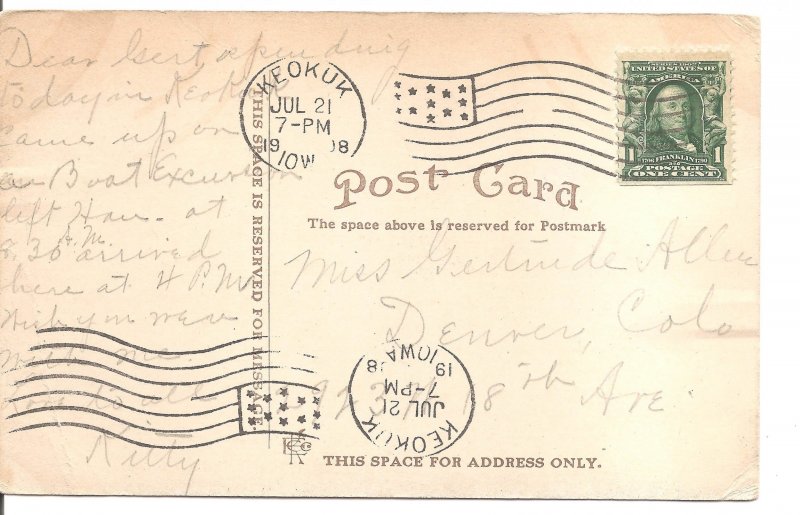 Dear Gert spending
today in Keokuk
came up on
an Boat Excursion
left Han. at
8.30 A.M. arrived
here at 4 P.M.
Wish you were
with me
Love to all
Kitty
THIS SPACE IS RESERVED FOR MESSAGE.
KEOKUK
JUL 21
7-PM
19 08
IOW
SERIES 1902
UNITED STATES OF
AMERICA
1 1706 FRANKLIN 1790 1
POSTAGE
ONE CENT
Post Card
The space above is reserved for Postmark
Miss Gertrude Allen
Denver, Colo
18th Ave.
KEOKUK
JUL 21
7-PM
19 08
IOWA
THIS SPACE FOR ADDRESS ONLY.